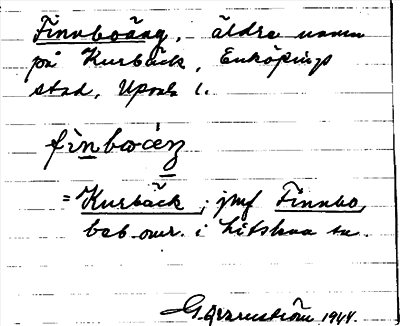 Finnboäng, äldre namn
på Kurbäck, Enköpings
stad, Upsala l.
= Kurbäck, jmf Finnbo,
beb.omr. i Litslena sn.
1944.